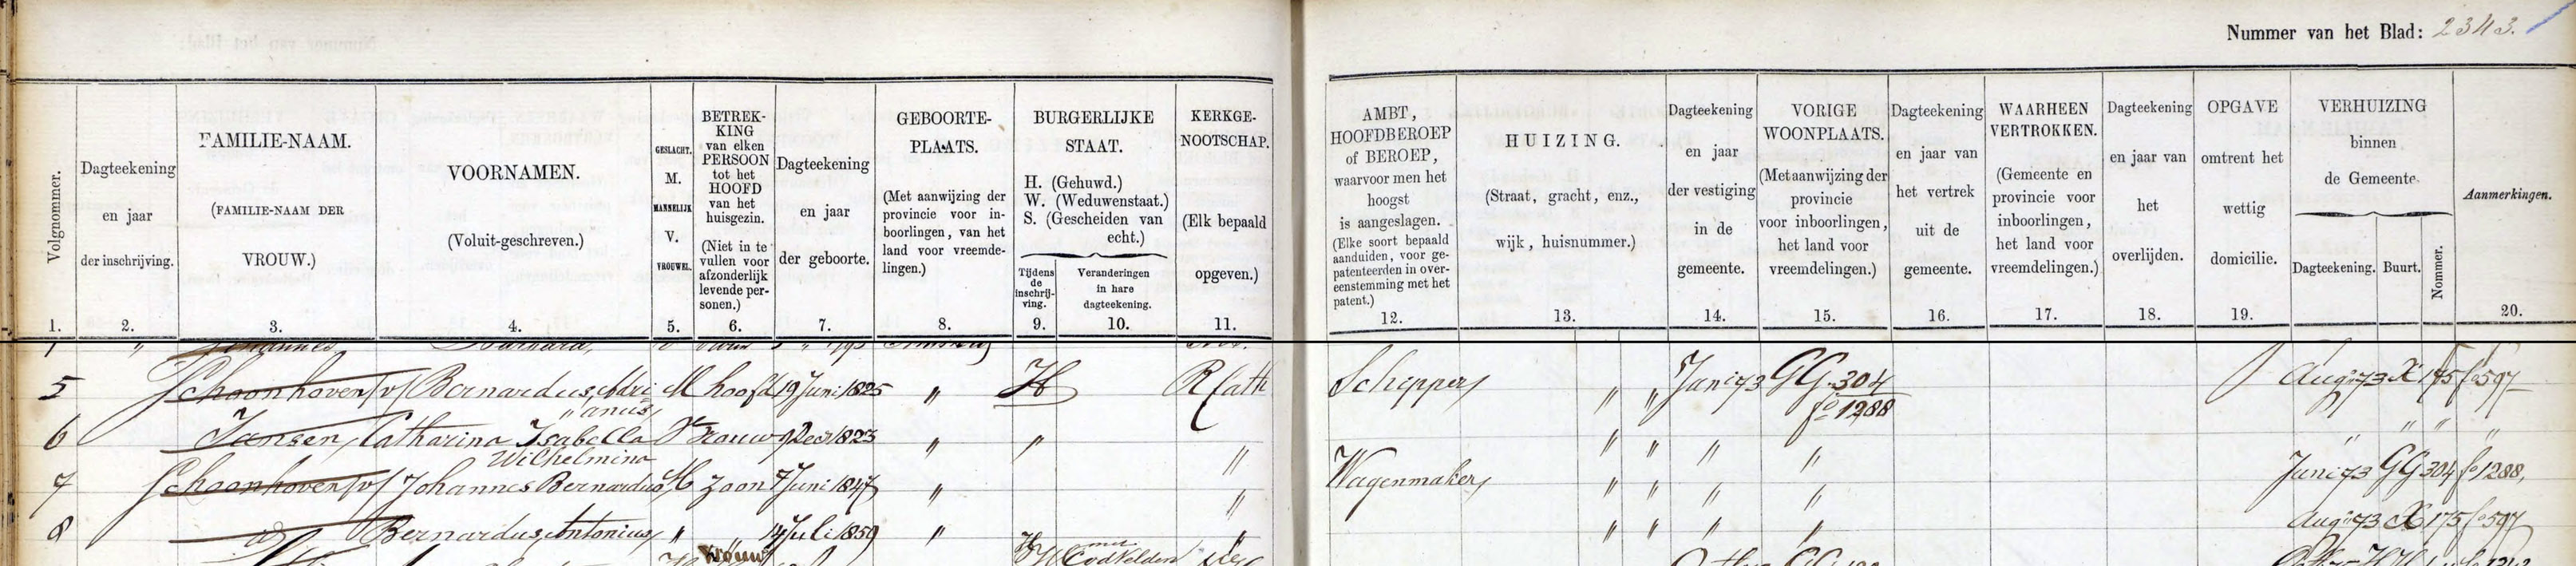 Nummer van het Blad: 2343.
Volgnommer.
1.
Dagteekening
en jaar
der inschrijving.
2.
FAMILIE-NAAM.
(FAMILIE-NAAM DER
VROUW.)
3.
VOORNAMEN.
(Voluit-geschreven.)
4.
GESLACHT.
M.
MANNELIJK
V.
VROUWEL.
5.
BETREK-
KING
van elken
PERSOON
tot het
HOOFD
van het
huisgezin.
(Niet in te
vullen voor
afzonderlijk
levende per-
sonen.)
6.
Dagteekening
en jaar
der geboorte.
7.
GEBOORTE-
PLAATS.
(Met aanwijzing der
provincie voor in-
boorlingen, van het
land voor vreemde-
lingen.)
8.
BURGERLIJKE
STAAT.
H. (Gehuwd.)
W. (Weduwenstaat.)
S. (Gescheiden van
echt.)
Tijdens
de
inschrij-
ving.
9.
Veranderingen
in hare
dagteekening.
10.
KERKGE-
NOOTSCHAP.
(Elk bepaald
opgeven.)
11.
AMBT,
HOOFDBEROEP
of BEROEP,
waarvoor men het
hoogst
is aangeslagen.
(Elke soort bepaald
aanduiden, voor ge-
patenteerden in over-
eenstemming met het
patent.)
12.
HUIZING.
(Straat, gracht, enz.,
wijk, huisnummer.)
13.
Dagteekening
en jaar
der vestiging
in de
gemeente.
14.
VORIGE
WOONPLAATS.
(Met aanwijzing der
provincie
voor inboorlingen,
het land voor
vreemdelingen.)
15.
Dagteekening
en jaar van
het vertrek
uit de
gemeente.
16.
WAARHEEN
VERTROKKEN.
(Gemeente en
provincie voor
inboorlingen,
het land voor
vreemdelingen.)
17.
Dagteekening
en jaar van
het
overlijden.
18.
OPGAVE
omtrent het
wettig
domicilie.
19.
VERHUIZING
binnen
de Gemeente.
Dagteekening. Buurt. Nommer.
Aanmerkingen.
20.
5 Schoonhoven, v/ Bernardus, Adri- M hoofd 19 Juni 1825 " H R Cath Schipper, " " Juni 73 GG 304 Augs 73 X 175 fo 597
anus, fo 1288
6 Jansen, Catharina Isabella V Vrouw 9 Dec 1823 " " " " " " " " " " "
Wilhelmina
7 Schoonhoven, v/ Johannes Bernardus M zoon 7 Juni 1847 " " Wagenmaker, " " " " Juni 73 GG 304 fo 1288,
8 Bernardus, Antonius, " " 14 Juli 1859 " " " " " " Augs 73 X 175 fo 597
Vrouw met